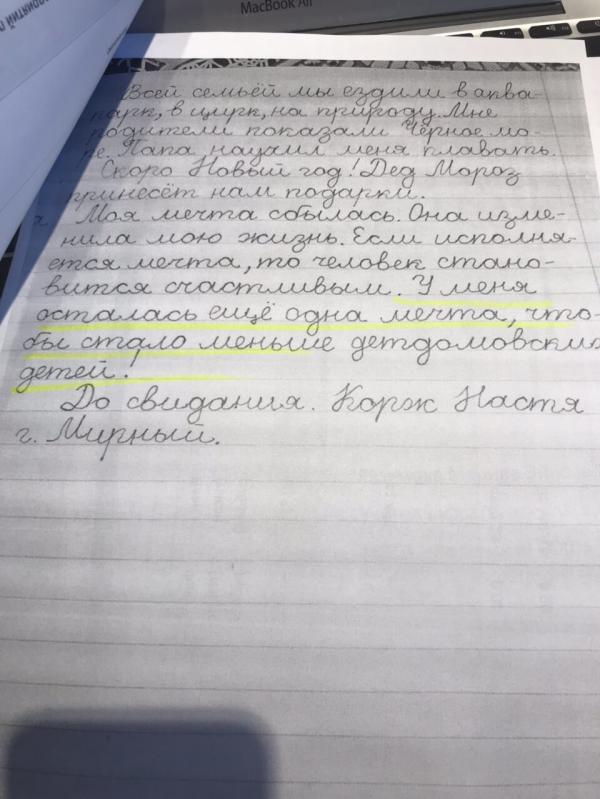 MacBook Air
Всей семьёй мы ездили в аква-
парк, в цирк, на природу. Мне
родители показали Чёрное мо-
ре. Папа научил меня плавать.
Скоро Новый год! Дед Мороз
принесёт нам подарки.
Моя мечта сбылась. Она изме-
нила мою жизнь. Если исполня-
ется мечта, то человек стано-
вится счастливым. У меня
осталась ещё одна мечта, что-
бы стало меньше детдомовских
детей!
До свидания. Корж Настя
г. Мирный.